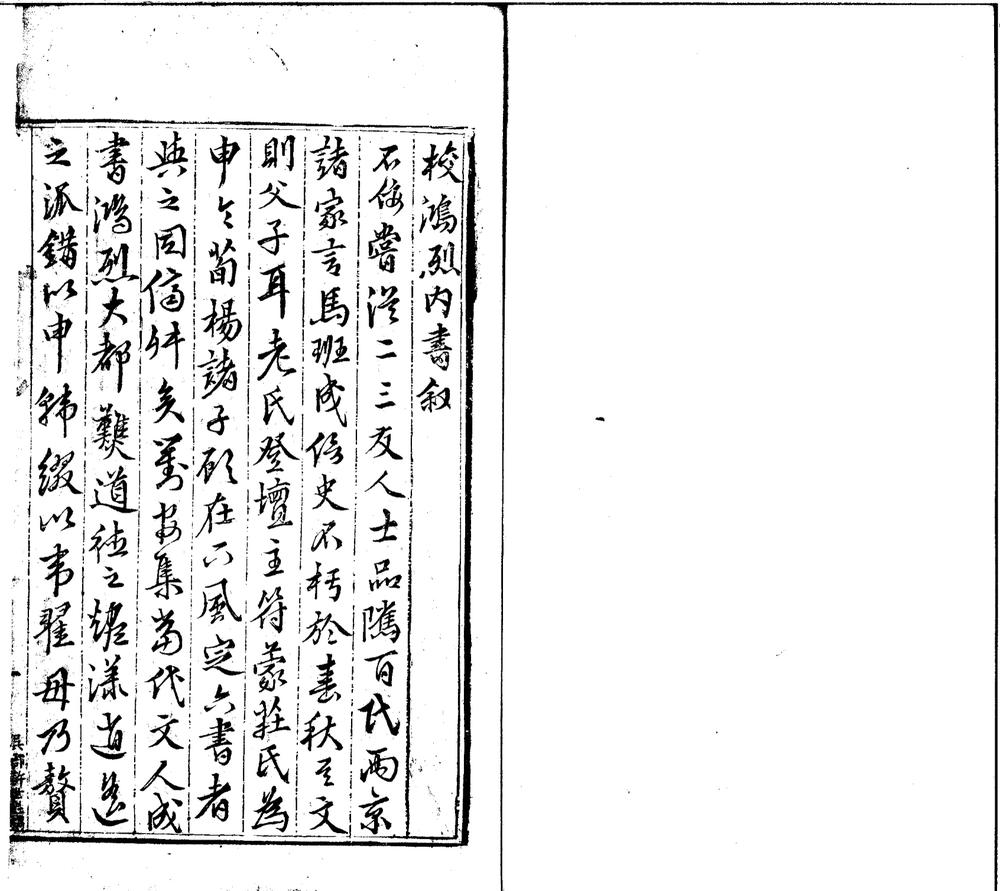 校鴻烈内書叙
不佞嘗從二三友人士品隲百代兩京
諸家言馬班成信史不朽於春秋其文
則父子耳老氏登壇主符蒙莊氏為
申令荀楊諸子頋在下風定六書者
與之同儕舛矣劉安集當代文人成
書鴻烈大都難道德之燼漾逍遙
之派錯以申韓綴以韋翟毋乃贅